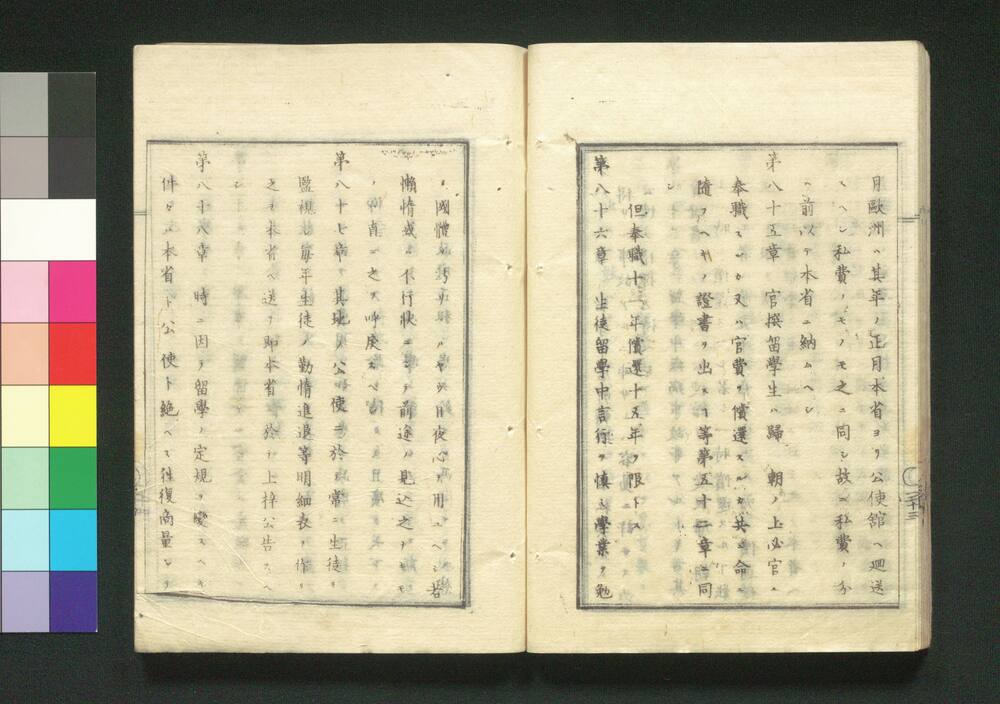 月歐洲ハ其年ノ正月本省ヨリ公使館ヘ廻送
スヘシ私費ノモノモ之ニ同シ故ニ私費ノ分
ハ前以テ本省ニ納ムヘシ
第八十五章 官撰留學生ハ歸 朝ノ上必官ニ
奉職スルカ又ハ官費ヲ償還スルカ共ニ命ニ
隨フヘキノ證書ヲ出スコト等第五十二章ニ同
但奉職十一年償還十五年ヲ限トス
第八十六章 生徒留學中言行ヲ慎ミ學業ヲ勉
國體 日夜心ヲ用ユヘシ若
懶惰或ハ不行狀ニシテ前途ノ見込之ナキモ
ノ 直ニ之ヲ呼戾スヘシ
第八十七章 其地ノ公使ニ於テ常ニ生徒ヲ
監視シ毎年生徒ノ勤惰進退等明細表ヲ作リ
之ヲ本省ヘ送リ即本省ニ於テ上梓公告スヘ
シ
第八十八章 時ニ因テ留學ノ定規ヲ變スヘキ
件ハ本省ト公使ト絶ヘス往復商量シテ